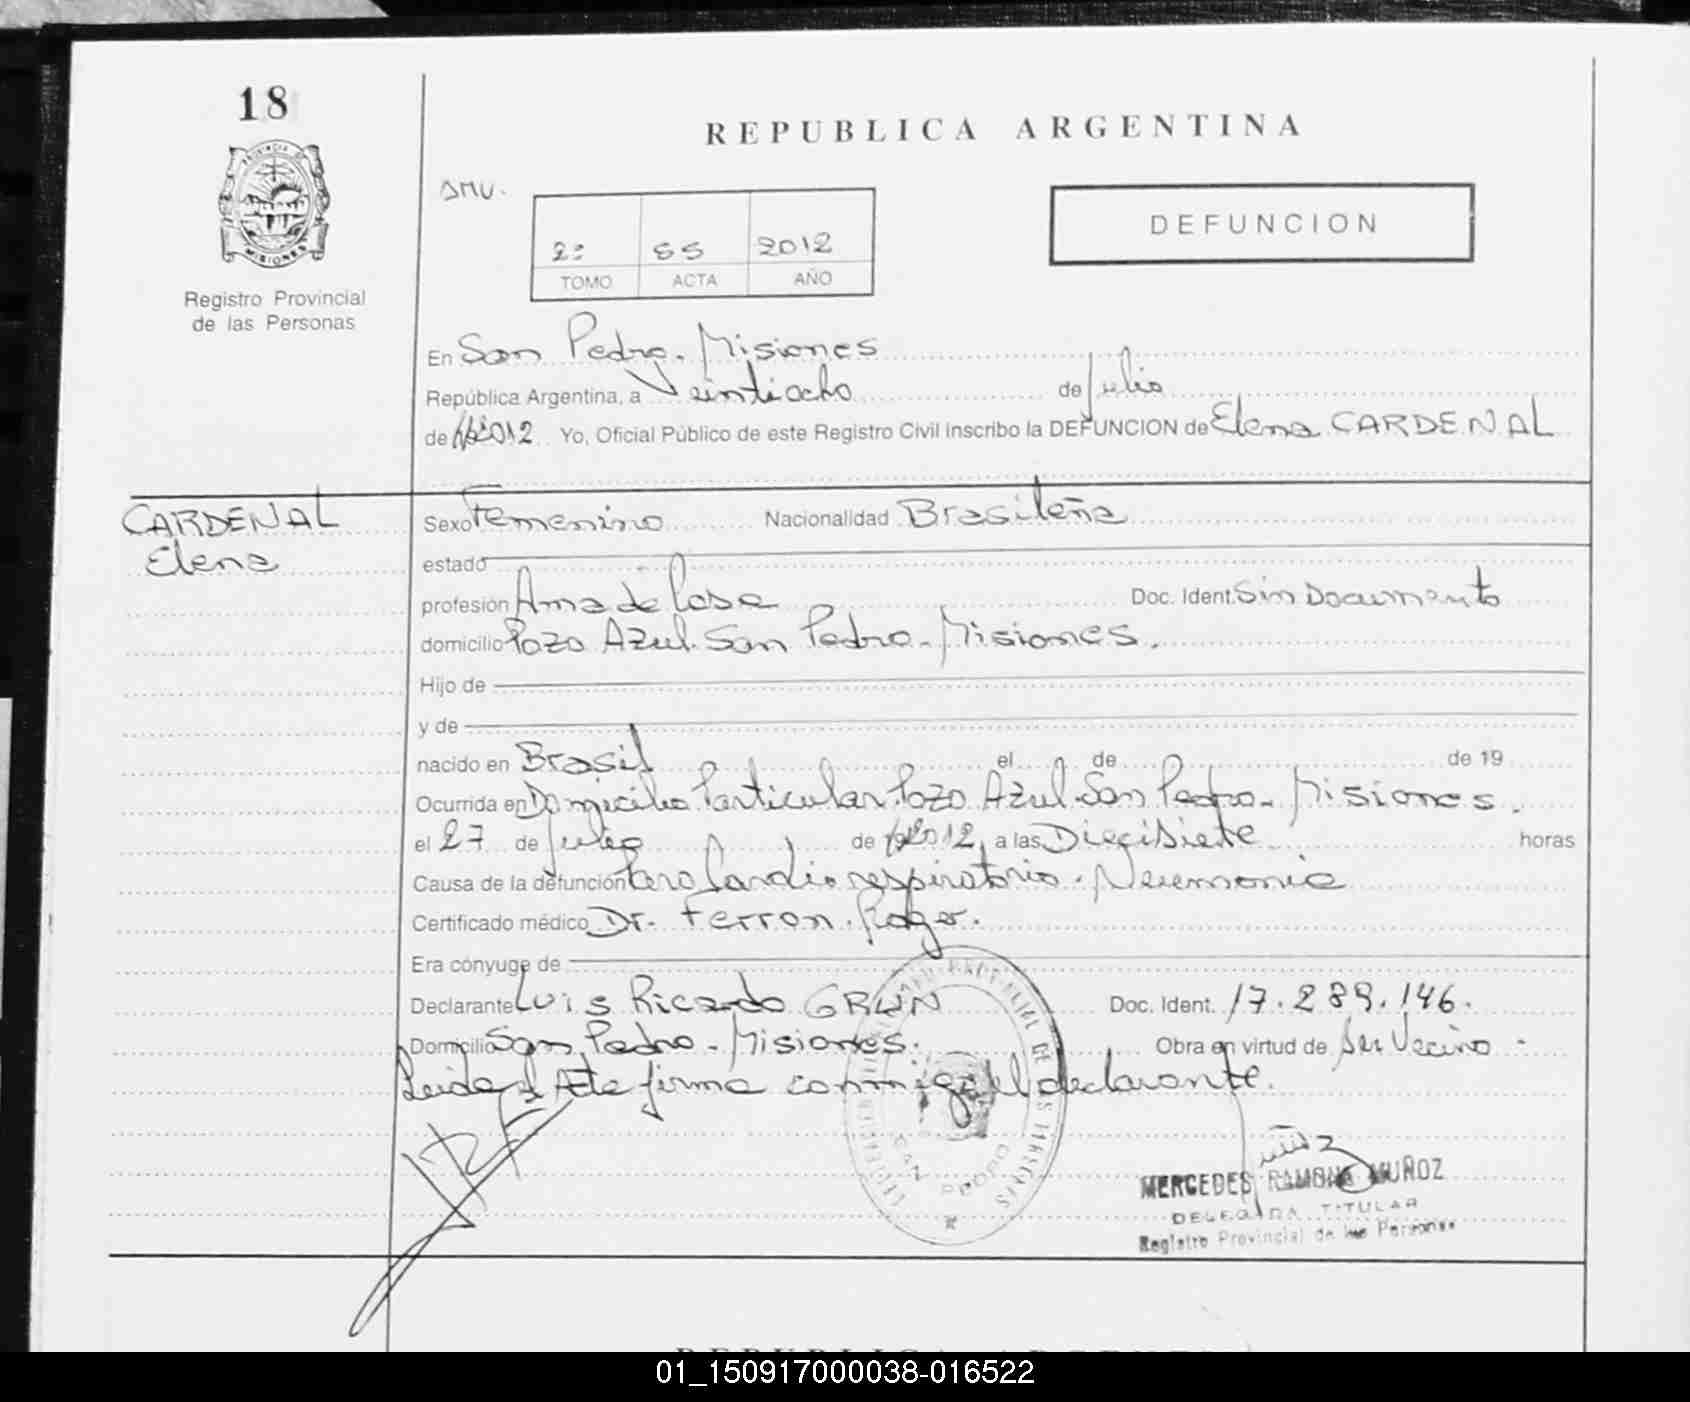 18
REPUBLICA ARGENTINA
PROVINCIA DE
MISIONES
Registro Provincial
de las Personas
SMU.
2º 55 2012
TOMO ACTA AÑO
DEFUNCION
En San Pedro. Misiones
República Argentina, a Veintiocho de julio
de 2012 Yo, Oficial Público de este Registro Civil inscribo la DEFUNCION de Elena CARDENAL
CARDENAL
Elena
Sexo Femenino Nacionalidad Brasileña
estado
profesión Ama de Casa Doc. Ident. Sin Documento
domicilio Pozo Azul. San Pedro - Misiones.
Hijo de
y de
nacido en Brasil el de de 19
Ocurrida en Domicilio Particular Pozo Azul San Pedro - Misiones.
el 27 de julio de 2012 a las Diecisiete horas
Causa de la defunción Paro Cardio respiratorio. Neumonia
Certificado médico Dr. Ferron. Roger.
Era cónyuge de
Declarante Luis Ricardo GRUN Doc. Ident. 17.289.146.
Domicilio San Pedro - Misiones. Obra en virtud de Ser Vecino -
Leida el Acta firma conmigo el declarante.
SAN PEDRO
MERCEDES RAMONA MUÑOZ
DELEGADA TITULAR
Registro Provincial de las Personas
REPUBLICA ARGENTINA
01_150917000038-016522